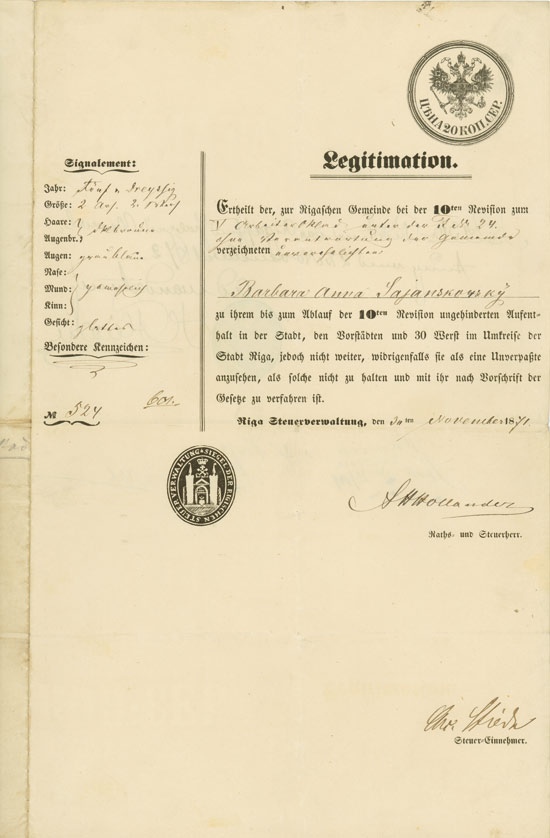 ЦѢНА 20 КОП. СЕР.
Legitimation.
Signalement:
Jahr: Fünf u. Dreyßig
Größe: 2 Arſ. 2
Haare:
Augenbr.: dkbraune
Augen: graublau
Naſe:
Mund: gewöhnlich
Kinn:
Geſicht: glattes
Beſondere Kennzeichen:
№ 524
Ertheilt der, zur Rigaſchen Gemeinde bei der 10ten Reviſion zum
V Arbeiter Oklad unter der № 24.
ohne Verantwortung der Gemeinde
verzeichneten unverehelichten
Barbara Anna Sajanskowsky
zu ihrem bis zum Ablauf der 10ten Reviſion ungehinderten Aufent-
halt in der Stadt, den Vorſtädten und 30 Werſt im Umkreiſe der
Stadt Riga, jedoch nicht weiter, widrigenfalls ſie als eine Unverpaßte
anzuſehen, als ſolche nicht zu halten und mit ihr nach Vorſchrift der
Geſetze zu verfahren iſt.
Riga Steuerverwaltung, den 30ten November 1871.
SIEGEL DER RIGISCHEN STEUER VERWALTUNG
A H Hollander
Raths- und Steuerherr.
Chr. Stieda
Steuer-Einnehmer.